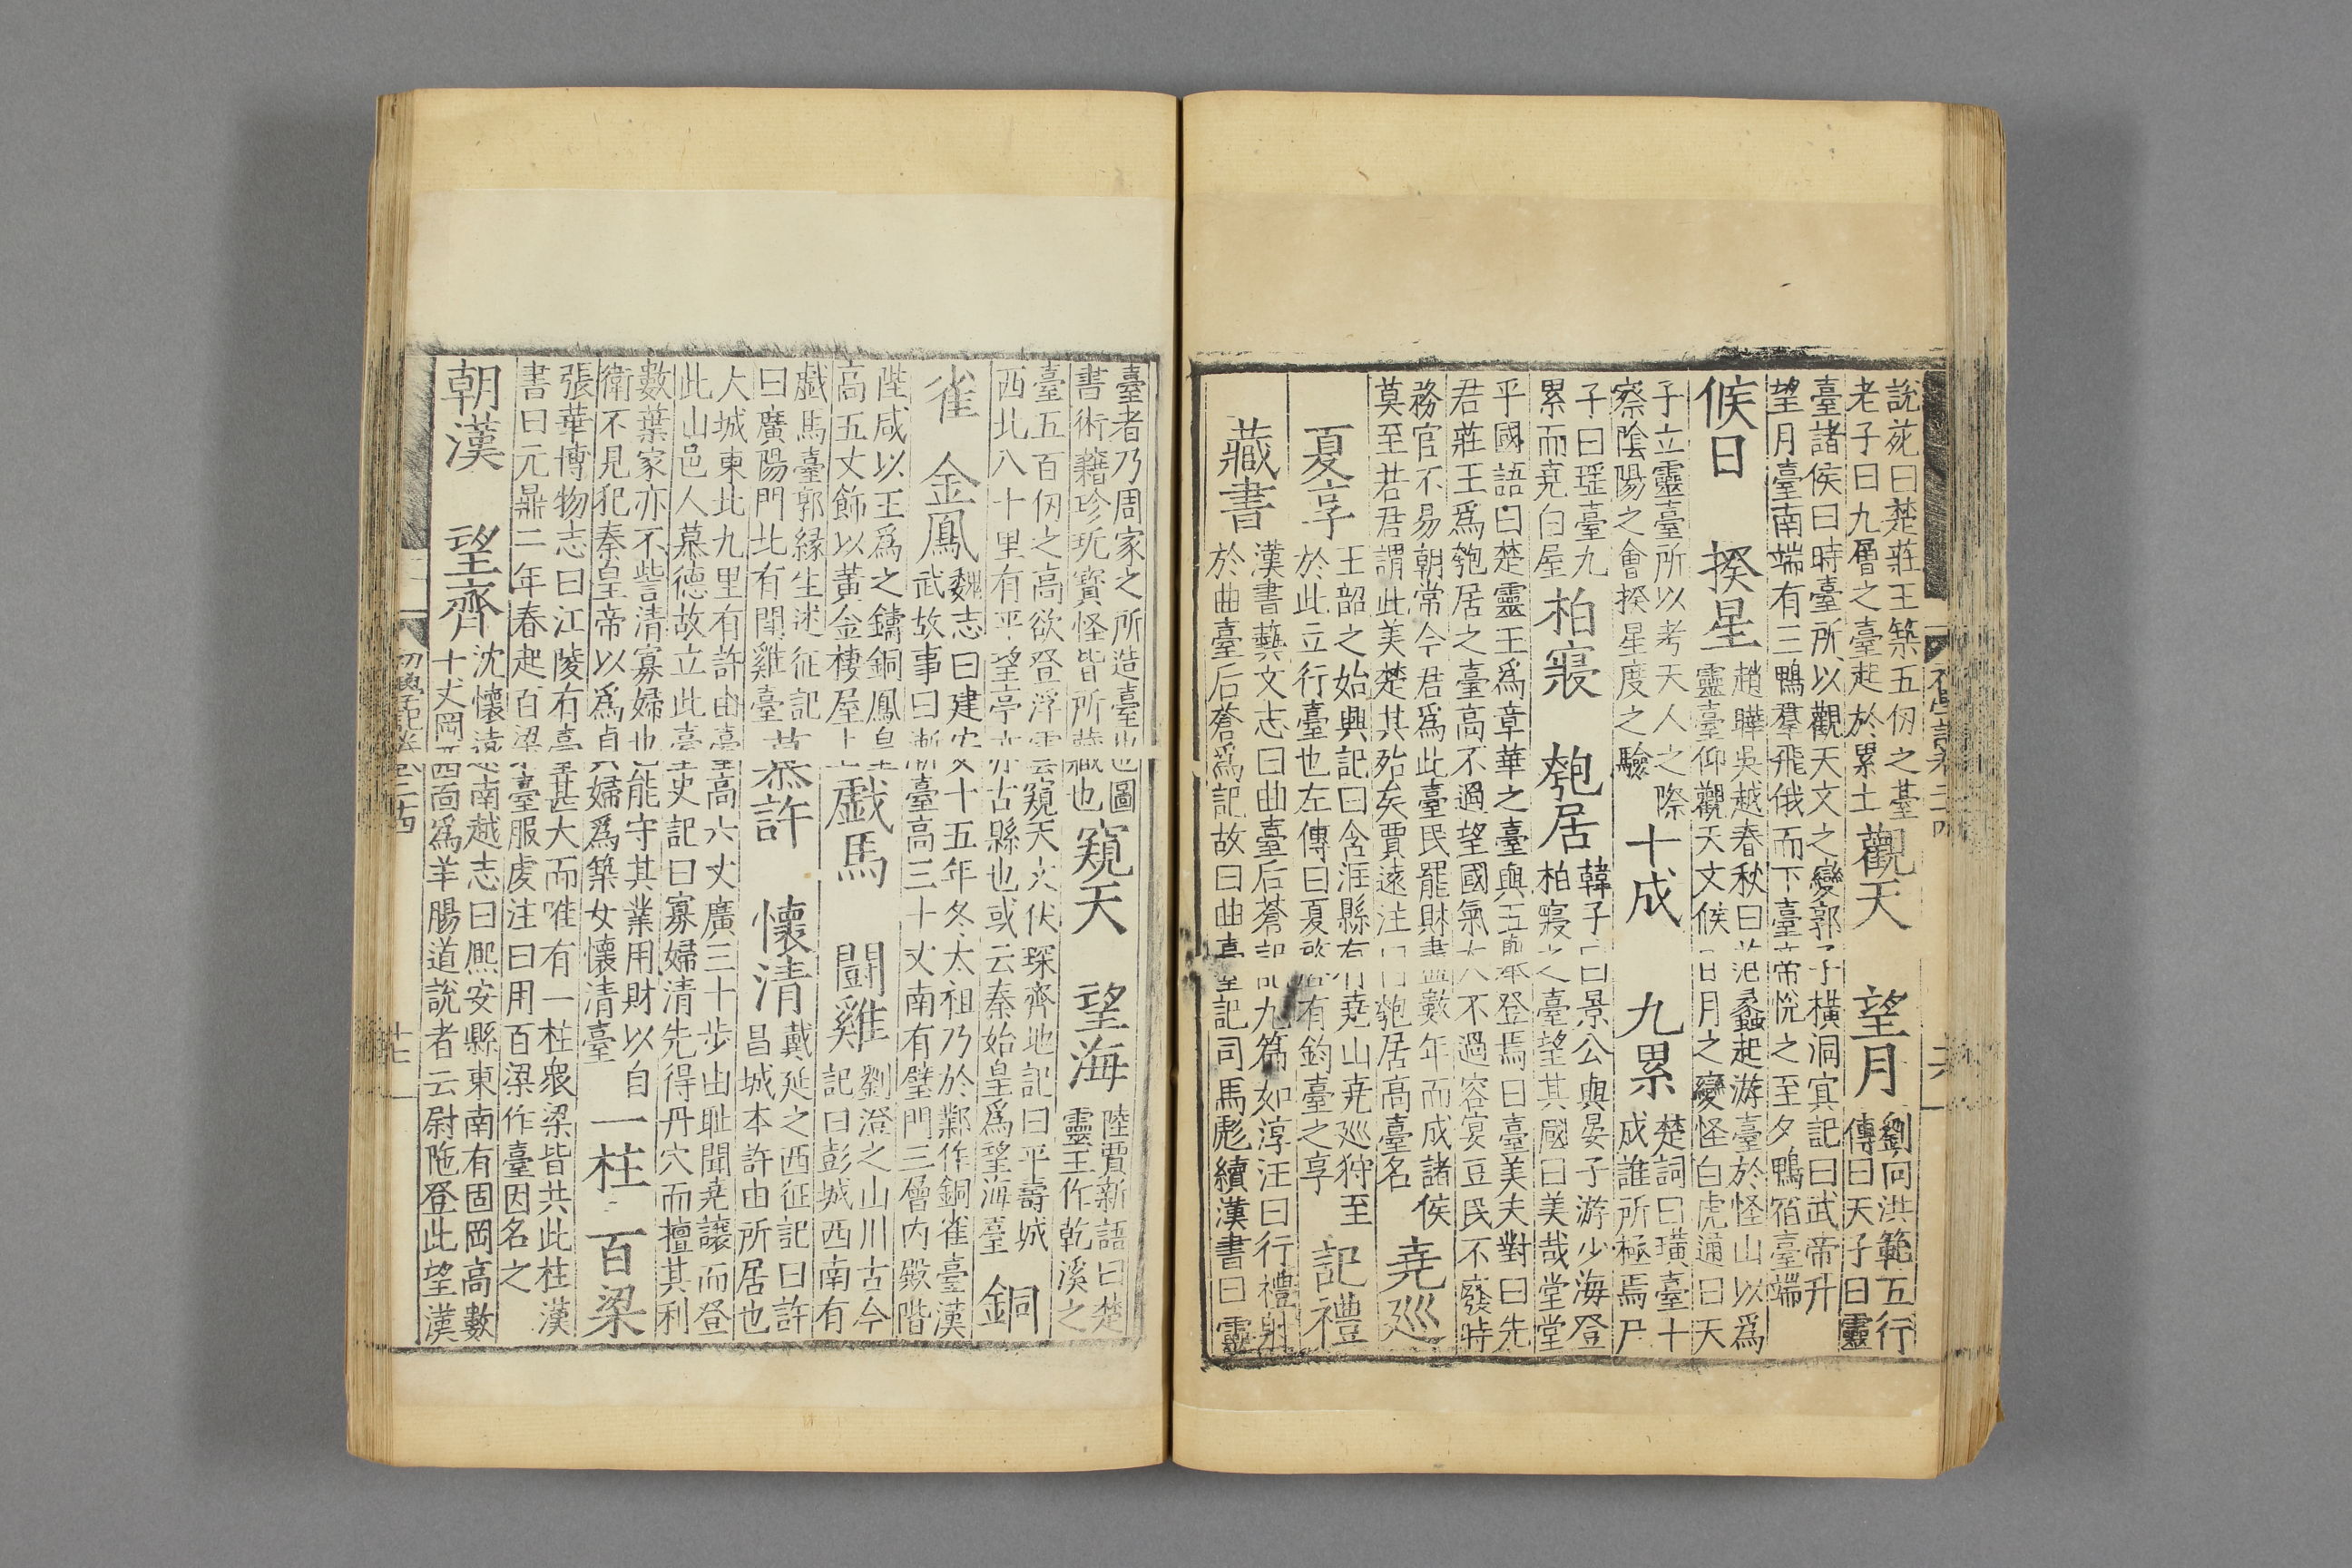 初學記卷二十四
六
說苑曰楚莊王築五仞之臺
老子曰九層之臺起於累土
觀天 望月
劉向洪範五行
傳曰天子曰靈
臺諸侯曰時臺所以觀天文之變郭子橫洞冥記曰武帝升
望月臺南端有三鴨羣飛俄而下臺帝悅之至夕鴨宿臺端
候日 揆星
趙曄吳越春秋曰范蠡起游臺於怪山以爲
靈臺仰觀天文候日月之變怪白虎通曰天
子立靈臺所以考天人之際
察陰陽之會揆星度之驗
十成 九累
楚詞曰璜臺十
成誰所極焉尸
子曰瑶臺九
累而堯白屋
柏寢 匏居
韓子曰景公與晏子游少海登
柏寢之臺望其國曰美哉堂堂
平國語曰楚靈王爲章華之臺與伍舉登焉曰臺美夫對曰先
君莊王爲匏居之臺高不過望國氣大不過容宴豆民不廢時
務官不易朝常今君爲此臺民罷財盡數年而成諸侯
莫至若君謂此美楚其殆矣賈逵注曰匏居高臺名
堯巡
夏享
王韶之始興記曰含洭縣有堯山堯巡狩至
於此立行臺也左傳曰夏啓有鈞臺之享
記禮
藏書
漢書藝文志曰曲臺后蒼記九篇如淳注曰行禮射
於曲臺后蒼爲記故曰曲臺記司馬彪續漢書曰靈
臺者乃周家之所造臺也圖
書術籍珍玩寶怪皆所藏也
窺天 望海
陸賈新語曰楚
靈王作乾溪之
臺五百仞之高欲登浮雲窺天文伏琛齊地記曰平壽城
西北八十里有平望亭亦古縣也或云秦始皇爲望海臺
銅
雀 金鳳
魏志曰建安十五年冬太祖乃於鄴作銅雀臺漢
武故事曰漸臺高三十丈南有璧門三層内殿階
陛咸以玉爲之鑄銅鳳皇
高五丈飾以黃金棲屋上
戲馬 鬬雞
劉澄之山川古今
記曰彭城西南有
戲馬臺郭緣生述征記
曰廣陽門北有鬬雞臺
慕許 懷清
戴延之西征記曰許
昌城本許由所居也
大城東北九里有許由臺高六丈廣三十步由耻聞堯讓而登
此山邑人慕德故立此臺史記曰寡婦清先得丹穴而擅其利
數葉家亦不訾清寡婦也能守其業用財以自
衛不見犯秦皇帝以爲貞婦爲築女懷清臺
一柱 百梁
張華博物志曰江陵有臺甚大而唯有一柱衆梁皆共此柱漢
書曰元鼎二年春起百梁臺服虔注曰用百梁作臺因名之
朝漢 望齊
沈懷遠南越志曰熙安縣東南有固岡高數
十丈岡西面爲羊腸道說者云尉陁登此望漢
初學記卷二十四
十七